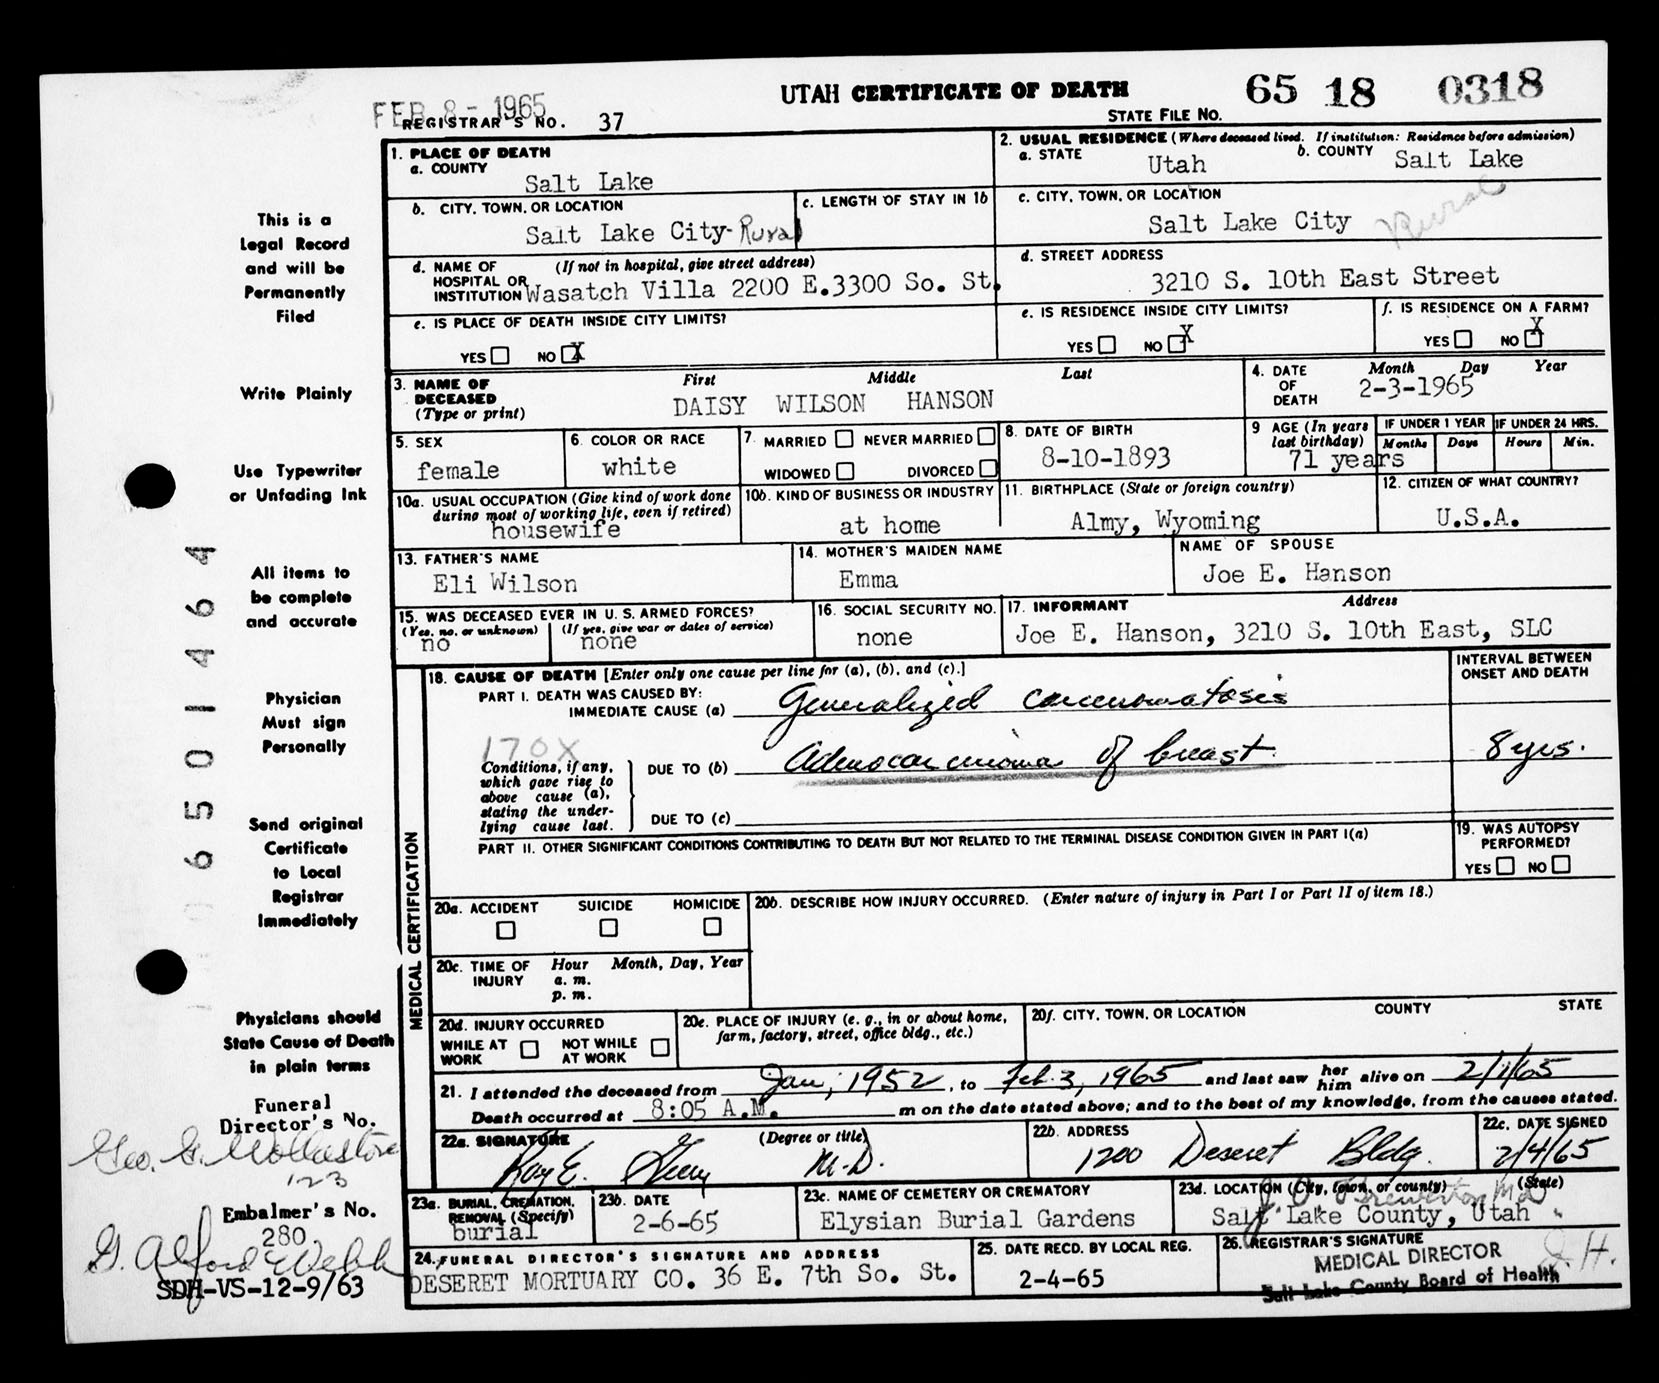 UTAH CERTIFICATE OF DEATH
65 18 0318
STATE FILE NO.
FEB 8 - 1965
REGISTRAR'S NO. 37
This is a
Legal Record
and will be
Permanently
Filed
Write Plainly
Use Typewriter
or Unfading Ink
All items to
be complete
and accurate
Physician
Must sign
Personally
Send original
Certificate
to Local
Registrar
Immediately
Physicians should
State Cause of Death
in plain terms
Funeral
Director's No.
123
Embalmer's No.
280
G. Alford Webb
SDH-VS-12-9/63
06501464
1. PLACE OF DEATH
a. COUNTY
Salt Lake
b. CITY, TOWN, OR LOCATION
Salt Lake City-Rural
c. LENGTH OF STAY IN 1b
d. NAME OF HOSPITAL OR INSTITUTION (If not in hospital, give street address)
Wasatch Villa 2200 E.3300 So. St.
e. IS PLACE OF DEATH INSIDE CITY LIMITS?
YES NO X
2. USUAL RESIDENCE (Where deceased lived. If institution: Residence before admission)
a. STATE Utah b. COUNTY Salt Lake
c. CITY, TOWN, OR LOCATION
Salt Lake City Rural
d. STREET ADDRESS
3210 S. 10th East Street
e. IS RESIDENCE INSIDE CITY LIMITS?
YES NO X
f. IS RESIDENCE ON A FARM?
YES NO X
3. NAME OF DECEASED (Type or print)
First Middle Last
DAISY WILSON HANSON
4. DATE OF DEATH
Month Day Year
2-3-1965
5. SEX
female
6. COLOR OR RACE
white
7. MARRIED NEVER MARRIED
WIDOWED DIVORCED
8. DATE OF BIRTH
8-10-1893
9 AGE (In years last birthday)
71 years
IF UNDER 1 YEAR
Months Days
IF UNDER 24 HRS.
Hours Min.
10a. USUAL OCCUPATION (Give kind of work done during most of working life, even if retired)
housewife
10b. KIND OF BUSINESS OR INDUSTRY
at home
11. BIRTHPLACE (State or foreign country)
Almy, Wyoming
12. CITIZEN OF WHAT COUNTRY?
U.S.A.
13. FATHER'S NAME
Eli Wilson
14. MOTHER'S MAIDEN NAME
Emma
NAME OF SPOUSE
Joe E. Hanson
15. WAS DECEASED EVER IN U.S. ARMED FORCES?
(Yes, no, or unknown) (If yes, give war or dates of service)
no none
16. SOCIAL SECURITY NO.
none
17. INFORMANT Address
Joe E. Hanson, 3210 S. 10th East, SLC
MEDICAL CERTIFICATION
18. CAUSE OF DEATH [Enter only one cause per line for (a), (b), and (c).]
INTERVAL BETWEEN ONSET AND DEATH
PART I. DEATH WAS CAUSED BY:
IMMEDIATE CAUSE (a) Generalized carcinomatosis
170X
Conditions, if any, which gave rise to above cause (a), stating the underlying cause last.
DUE TO (b) Adenocarcinoma of breast. 8 yrs.
DUE TO (c)
PART II. OTHER SIGNIFICANT CONDITIONS CONTRIBUTING TO DEATH BUT NOT RELATED TO THE TERMINAL DISEASE CONDITION GIVEN IN PART I(a)
19. WAS AUTOPSY PERFORMED?
YES NO
20a. ACCIDENT SUICIDE HOMICIDE
20b. DESCRIBE HOW INJURY OCCURRED. (Enter nature of injury in Part I or Part II of item 18.)
20c. TIME OF INJURY Hour Month, Day, Year
a. m.
p. m.
20d. INJURY OCCURRED
WHILE AT WORK NOT WHILE AT WORK
20e. PLACE OF INJURY (e. g., in or about home, farm, factory, street, office bldg., etc.)
20f. CITY, TOWN, OR LOCATION COUNTY STATE
21. I attended the deceased from Jan, 1952, to Feb. 3, 1965 and last saw her him alive on 2/1/65
Death occurred at 8:05 A.M. m on the date stated above; and to the best of my knowledge, from the causes stated.
22a. SIGNATURE (Degree or title)
Ray E. M.D.
22b. ADDRESS
1200 Deseret Bldg.
22c. DATE SIGNED
2/4/65
23a. BURIAL, CREMATION, REMOVAL (Specify)
burial
23b. DATE
2-6-65
23c. NAME OF CEMETERY OR CREMATORY
Elysian Burial Gardens
23d. LOCATION (City, town, or county) (State)
Salt Lake County, Utah
24. FUNERAL DIRECTOR'S SIGNATURE AND ADDRESS
DESERET MORTUARY CO. 36 E. 7th So. St.
25. DATE RECD. BY LOCAL REG.
2-4-65
26. REGISTRAR'S SIGNATURE
MEDICAL DIRECTOR
Salt Lake County Board of Health